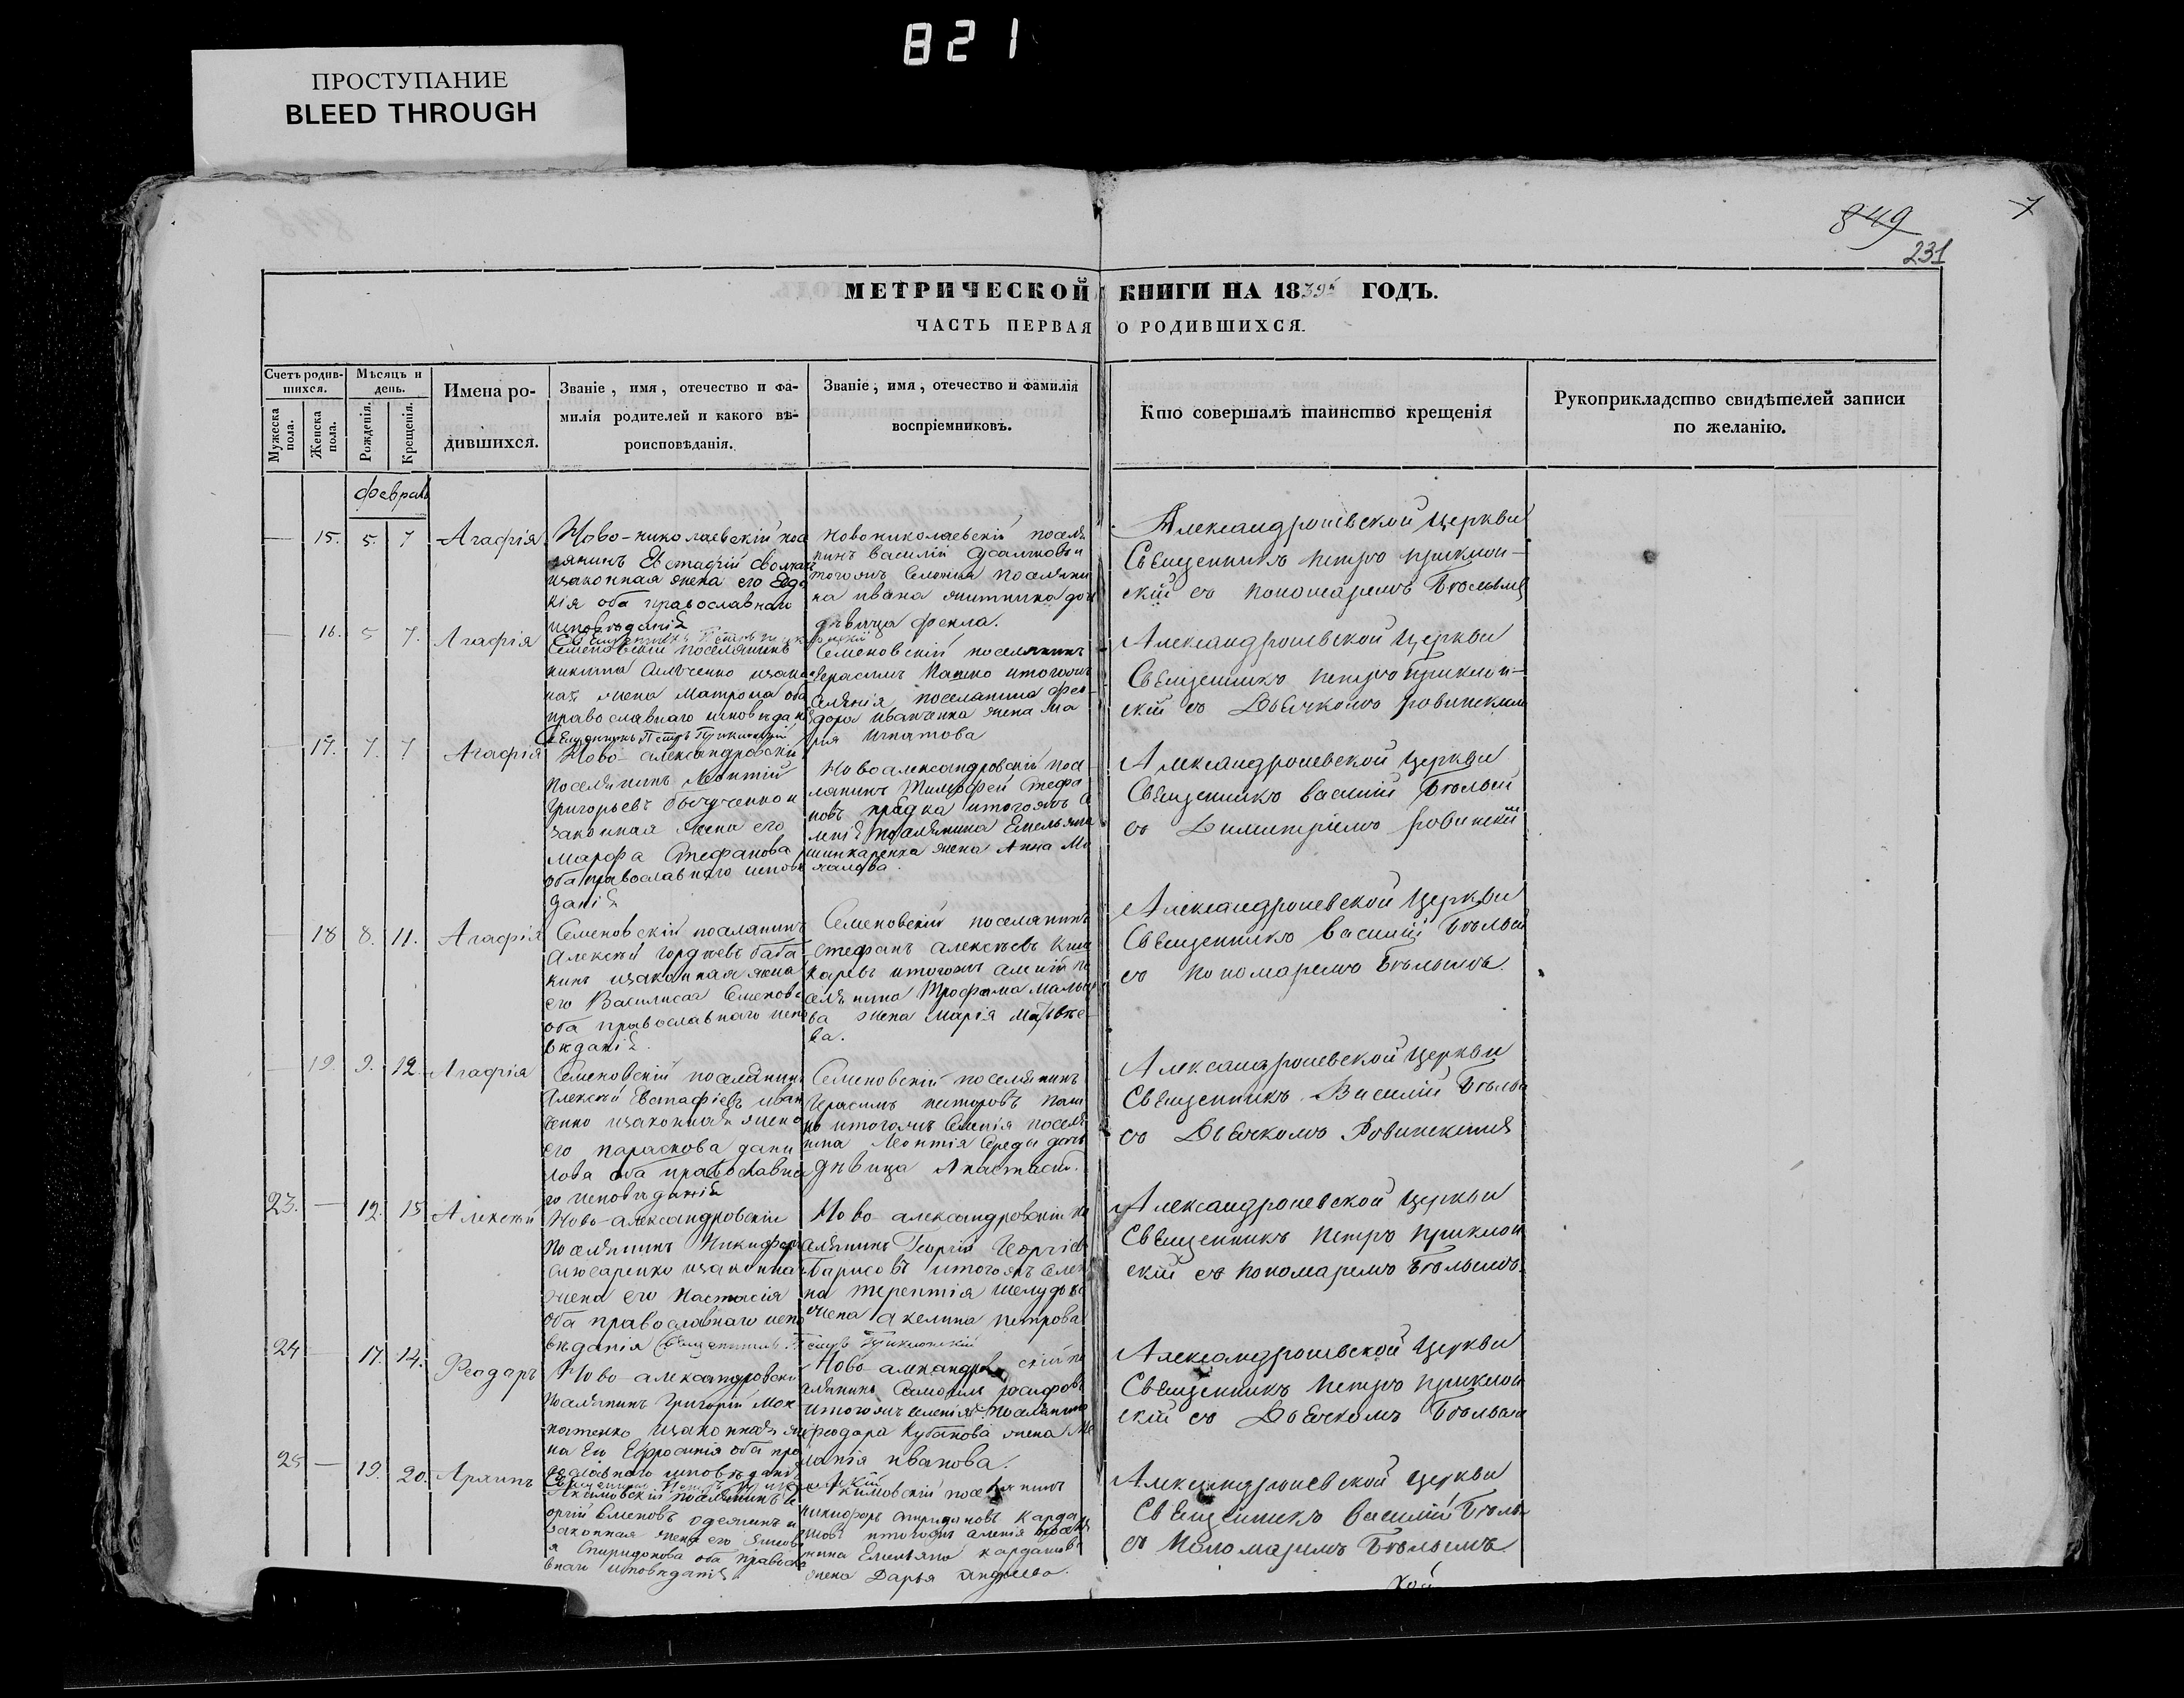 821
ПРОСТУПАНИЕ
BLEED THROUGH
849
7
231
МЕТРИЧЕСКОЙ КНИГИ НА 1839й ГОДЪ.
ЧАСТЬ ПЕРВАЯ О РОДИВШИХСЯ.
Счетъ родив-
шихся.
Мужеска
пола.
Женска
пола.
Мѣсяцъ и
день.
Рожденія.
Крещенія.
Имена ро-
дившихся.
Званіе, имя, отечество и фа-
милія родителей и какого вѣ-
роисповѣданія.
Званіе, имя, отечество и фамилія
воспріемниковъ.
Кто совершалъ таинство крещенія
Рукоприкладство свидѣтелей записи
по желанію.
февраль
— 15. 5. 7 Агафія
Ново-николаевскій посе
лянинъ Евстафій
изаконная жена его Евдо
кія оба православнаго
исповѣданія
Новониколаевскій поселя
нинъ василій
тогожъ селенія поселяни
на ивана житника дочь
дѣвица фекла.
Александроневской Церкви
Священникъ петръ приклон-
скій съ пономаремъ Бѣлымъ
— 16. 5 7. Агафія
Священникъ Петръ Приклонскій
Семеновскій поселянинъ
никита изакон
ная жена Матрона оба
православнаго исповѣдан
Семеновскій поселянинъ
Герасимъ Пашко итогожъ
селенія поселянина фео-
дора иванченка жена Ма
рія Игнатова
Александроневской Церкви
Священникъ петръ приклон-
скій съ Дьячкомъ ровинскимъ
— 17. 7. 7 Агафія
Священникъ Петръ Приклонскій
Ново-александровскій
поселянинъ Леонтій
Григорьевъ и
законная жена его
марфа Стефанова
оба православнаго испове
данія
Новоалександровскій посе
лянинъ Тимофей Стефа
новъ итогожъ се
ленія поселянина Емельяна
шинкаренка жена Анна Ми
хайлова.
Александроневской Церкви
Священникъ василій Бѣлый
съ Димитріемъ ровинскій
— 18 8. 11. Агафія
Семеновскій поселянинъ
Алексѣй гордѣевъ баба
кинъ изаконная жена
его Василиса Семенова
оба православнаго испо
вѣданія.
Семеновскій поселянинъ
Стефанъ алексѣевъ
итогожъ селенія по
селянина Трофима
ва жена марія Матвѣе
ва.
Александроневской Церкви
Священникъ василій Бѣлый
съ пономаремъ Бѣлымъ.
— 19. 9. 12. Агафія
Семеновскій поселянинъ
Алексѣй Евстафіевъ иван
ченко изаконная жена
его параскова дани
лова оба православна
го исповѣданія
Семеновскій поселянинъ
Герасимъ петровъ паш
ко итогожъ Селенія поселя
нина Леонтія Середы дочь
дѣвица Анастасія.
Александроневской Церкви
Священникъ Василій Бѣлый
съ Дьячкомъ Ровинскимъ
23. — 12. 15 Алексѣй
Ново-александровскій
поселянинъ Никифоръ
слюсаренко изаконная
жена его Настасія
оба православнаго испо
вѣданія Священникъ Петръ Приклонскій
Ново александровскій по
селянинъ Георгій Георгіевъ
Барисовъ итогожъ селе
на терентія шелудько
жена акелина петрова
Александроневской Церкви
Священникъ петръ приклон
скій съ пономаремъ Бѣлымъ
24 — 17. 14. Феодоръ
Ново-александровскій
поселянинъ Григорій
изаконная же
на Его Ефросинія оба пра
вославнаго исповѣданія
Ново-александровскій по
селянинъ Самоилъ іосифовъ
итогожъ селенія поселянина
феодора Кубанова жена Ме
ланія иванова.
Александроневской Церкви
Священникъ петръ приклон
скій съ Дьячкомъ Бѣлымъ
25 — 19. 20.
Священникъ Петръ Приклонскій
Акимовскій поселянинъ Ге
оргій Семеновъ и
законная жена его
я Спиридонова оба правосла
внаго исповѣданія
Акимовскій поселянинъ
никифоръ спиридоновъ Карда
шовъ итогожъ селенія поселя
нина Емельяна кардашова
жена Дарья андреева.
Александроневской Церкви
Священникъ василій Бѣлы
съ Пономаремъ Бѣлымъ